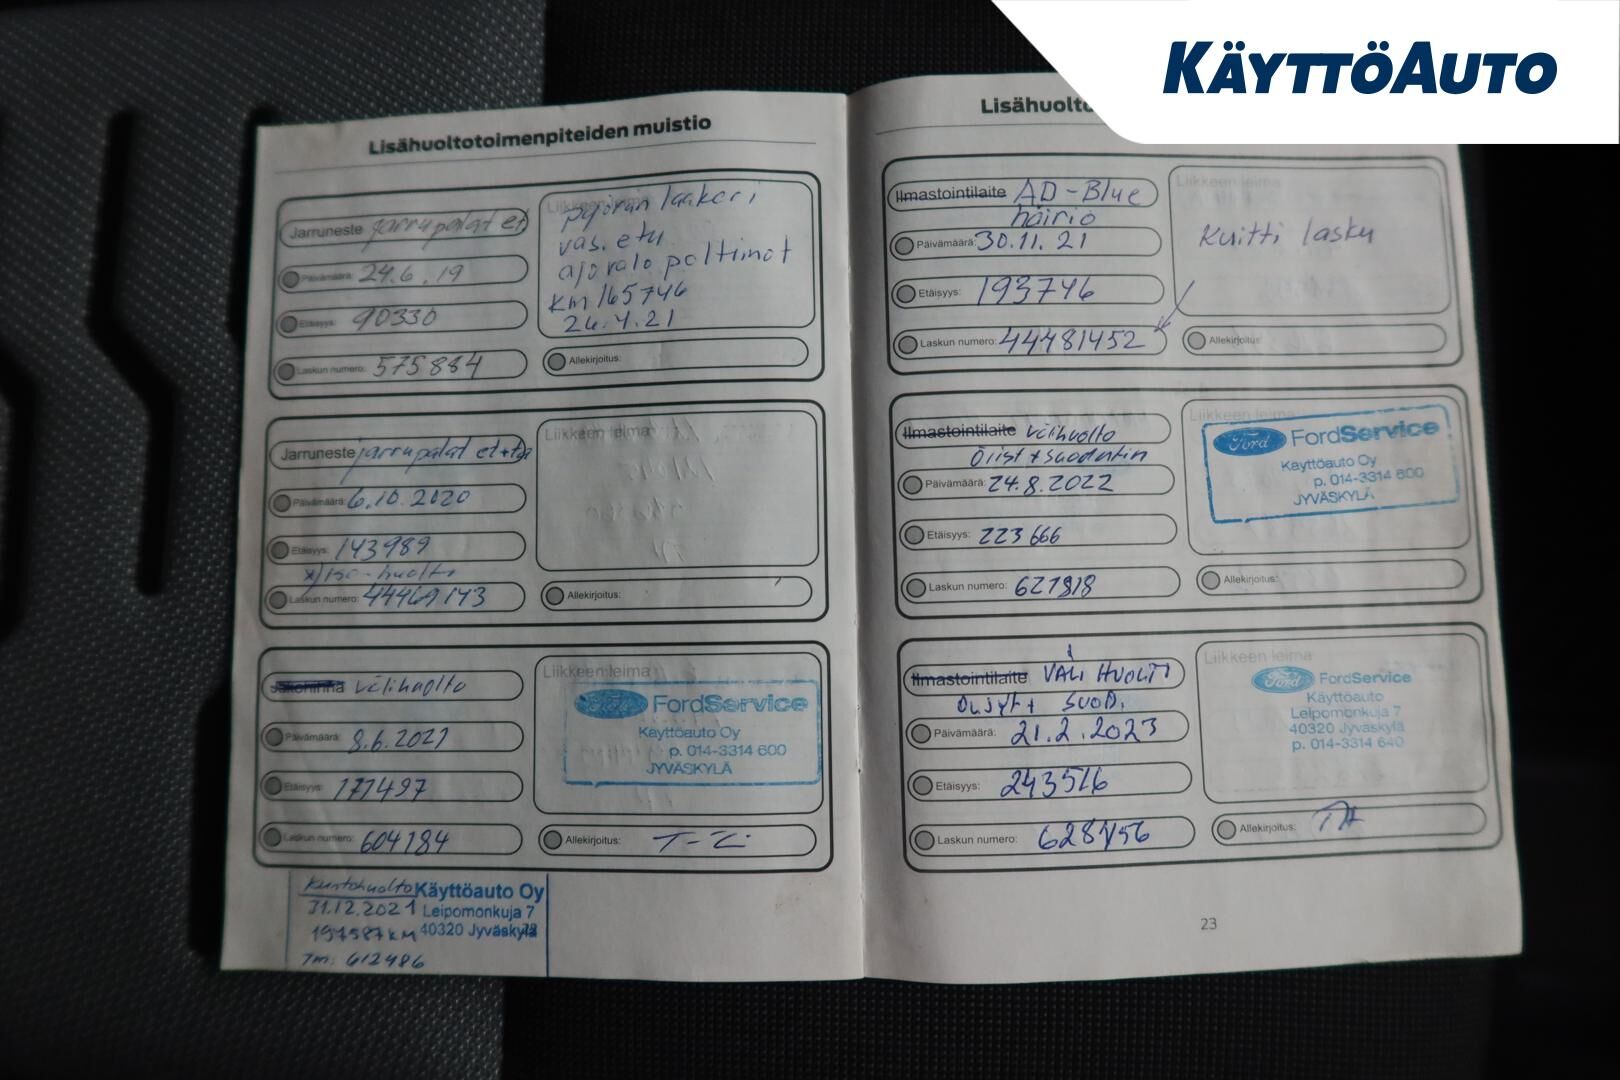 KÄYTTÖAUTO
Lisähuoltotoimenpiteiden muistio
Jarruneste jarrupalat et
Päivämäärä: 24.6.19
Etäisyys: 90330
Laskun numero: 575884
Liikkeen leima
pyörän laakeri
vas. etu
ajovalo polttimot
km 165746
26.4.21
Allekirjoitus:
Jarruneste jarrupalat et+ta
Päivämäärä: 6.10.2020
Etäisyys: 143989
Laskun numero: 44469143
Liikkeen leima
Allekirjoitus:
välihuolto
Päivämäärä: 8.6.2021
Etäisyys: 171497
Laskun numero: 604184
Liikkeen leima
Ford FordService
Käyttöauto Oy
p. 014-3314 600
JYVÄSKYLÄ
Allekirjoitus:
Kuntohuolto Käyttöauto Oy
31.12.2021 Leipomonkuja 7
197587 KM 40320 Jyväskylä
Tm: 612486
Ilmastointilaite AD-Blue
häiriö
Päivämäärä: 30.11.21
Etäisyys: 193746
Laskun numero: 44481452
Liikkeen leima
Kuitti lasku
Allekirjoitus:
Ilmastointilaite välihuolto
Päivämäärä: 24.8.2022
Etäisyys: 223666
Laskun numero: 627818
Liikkeen leima
Ford FordService
Käyttöauto Oy
p. 014-3314 600
JYVÄSKYLÄ
Allekirjoitus:
Ilmastointilaite VÄLI HUOLTI
Päivämäärä: 21.2.2023
Etäisyys: 243516
Laskun numero:
Liikkeen leima
Ford FordService
Käyttöauto
Leipomonkuja 7
40320 Jyväskylä
p. 014-3314 640
Allekirjoitus:
23